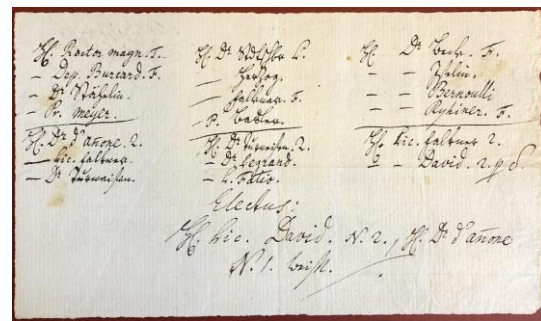 H. Rector magn. F.
– Dep. Burcard. F.
– Dr Stähelin.
– Pr. Meyer.
H. Dr d'Añone. 2.
– Lic. Falkner
– Dr Turneisen.
H. Dr
– Herzog.
– Falkner. F.
– P. Barbier.
H. Dr Turneisen 2.
– Dr Legrand.
– L. Fatio.
H. Dr Beck. F.
– – Iselin.
– – Bernoulli
– – Ryhiner. F.
H. Lic. Falkner 2.
– David. 2.
Electus:
H. Lic. David. N. 2., H. Dr d'Añone
N. 1.